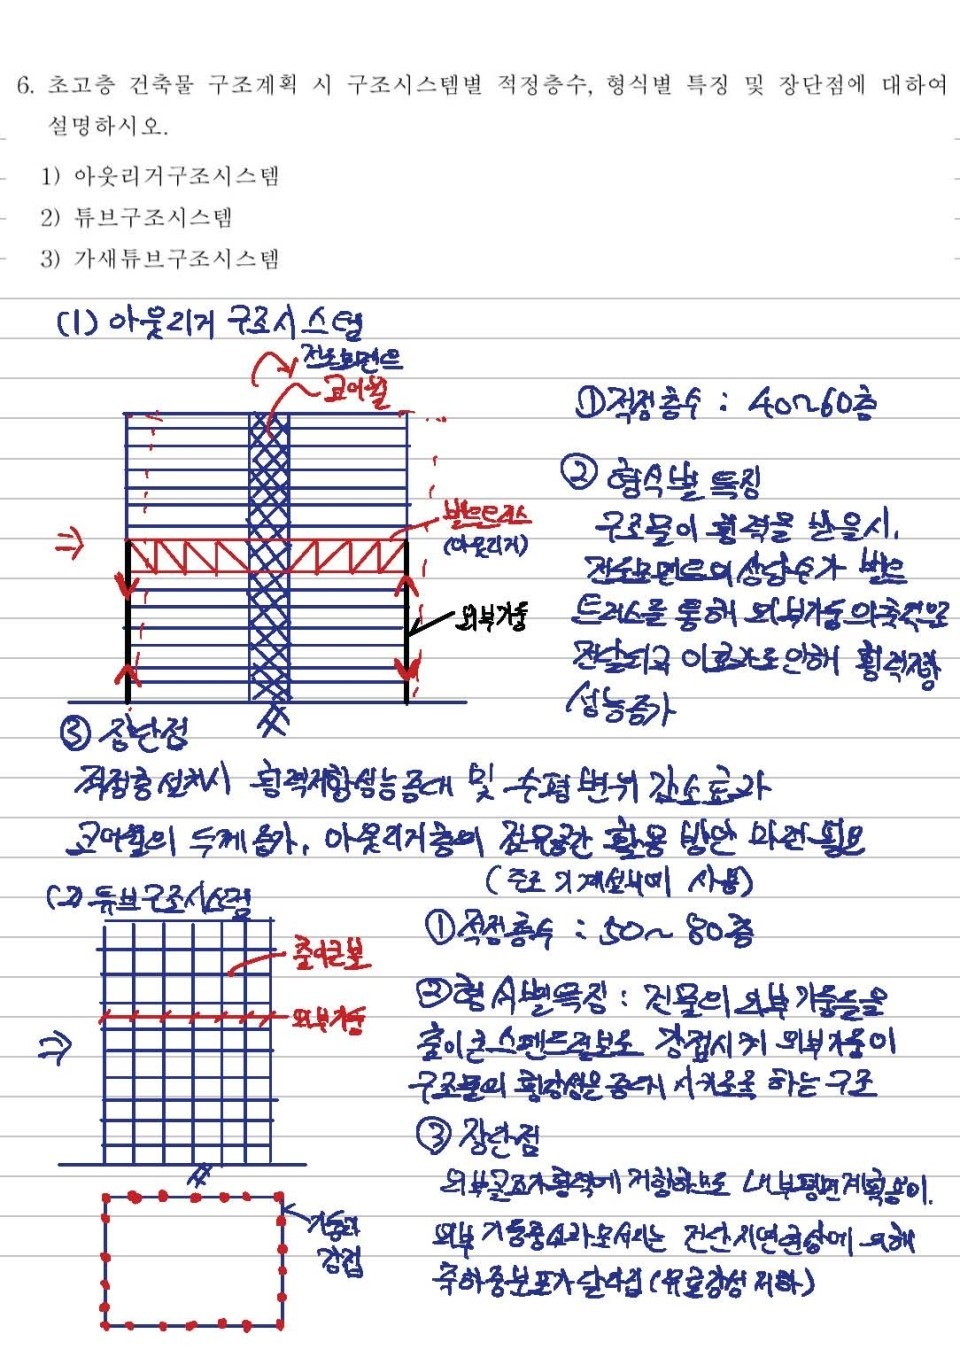 6. 초고층 건축물 구조계획 시 구조시스템별 적정층수, 형식별 특징 및 장단점에 대하여
설명하시오.
1) 아웃리거구조시스템
2) 튜브구조시스템
3) 가새튜브구조시스템
(1) 아웃리거 구조시스템
전도모멘트
코어월
① 적정층수 : 40~60층
② 형식별 특징
벨트트러스
(아웃리거)
외부기둥
구조물이 횡력을 받을시,
전도모멘트의 상당수가 벨트
트러스를 통해 외부기둥의 축력으로
전달되고 이효과로 인해 횡력저항
성능증가
③ 장단점
적정층 설치시 횡력저항성능증대 및 수평변위 감소효과
코어월의 두께 증가, 아웃리거층의 점유공간 활용 방안 마련 필요
(주로 기계설비에 사용)
(2) 튜브구조시스템
춤이큰보
외부기둥
① 적정층수 : 50~80층
② 형식별특징 : 건물의 외부 기둥들을
춤이 큰 스팬드럴보로 강접시켜 외부기둥이
구조물의 횡강성을 증대시키도록 하는 구조
③ 장단점
외부골조가 횡력에 저항하므로 내부평면계획용이.
외부 기둥중심과 모서리는 전단지연현상에 의해
축하중분포가 달라짐 (유효강성 저하)
기둥과
강접